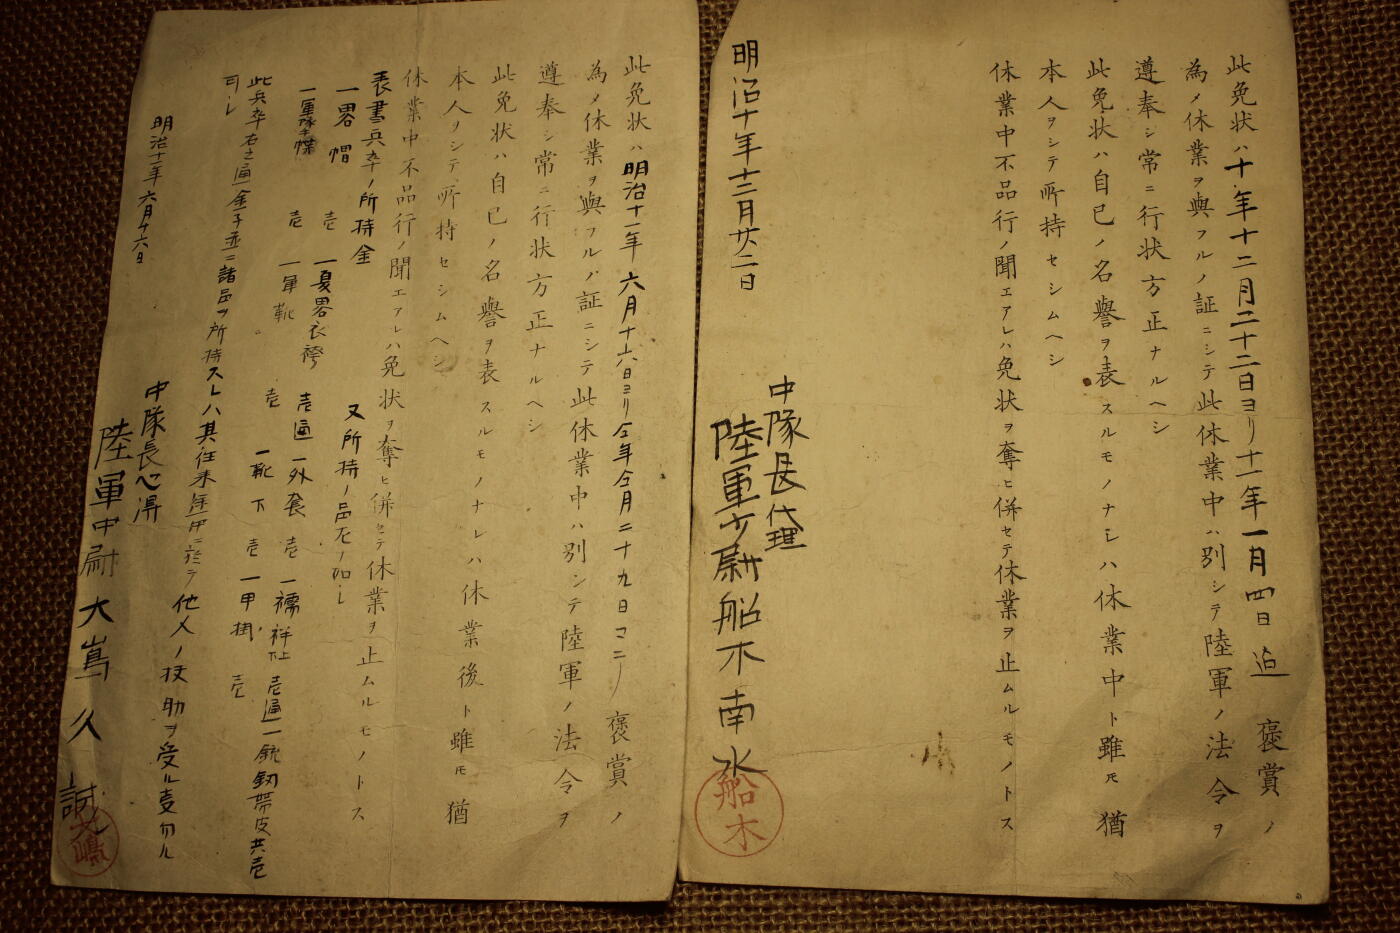 此免状ハ十年十二月二十二日ヨリ十一年一月四日迠褒賞ノ
為メ休業ヲ與フルノ証ニシテ此休業中ハ別シテ陸軍ノ法令ヲ
遵奉シ常ニ行状方正ナルヘシ
此免状ハ自已ノ名譽ヲ表スルモノナレハ休業中ト雖モ猶
本人ヲシテ所持セシムヘシ
休業中不品行ノ聞エアレハ免状ヲ奪ヒ併セテ休業ヲ止ムルモノトス
明治十年十二月廿二日
中隊長代理
陸軍少尉船木南水
船木
此免状ハ明治十一年六月十六日ヨリ仝年仝月二十九日マニノ褒賞ノ
為メ休業ヲ與フルノ証ニシテ此休業中ハ別シテ陸軍ノ法令ヲ
遵奉シ常ニ行状方正ナルヘシ
此免状ハ自已ノ名譽ヲ表スルモノナレハ休業後ト雖モ猶
本人ヲシテ所持セシムヘシ
休業中不品行ノ聞エアレハ免状ヲ奪ヒ併セテ休業ヲ止ムルモノトス
表書兵卒ノ所持金 又所持ノ品左ノ如シ
一畧帽 壱 一夏畧衣袴 壱通 一外套 壱 一襦袢 壱通 一銃釼帯皮共壱
一軍隊手帳 壱 一軍靴 壱 一靴下 壱 一甲掛 壱
此兵卒右之通金子並ニ諸品ヲ所持スレハ其往来 中ニ於テ他人ノ扶助ヲ受ル事勿ル
可シ
明治十一年六月十六日
中隊長心得
陸軍中尉大嶌久誠
大嶋